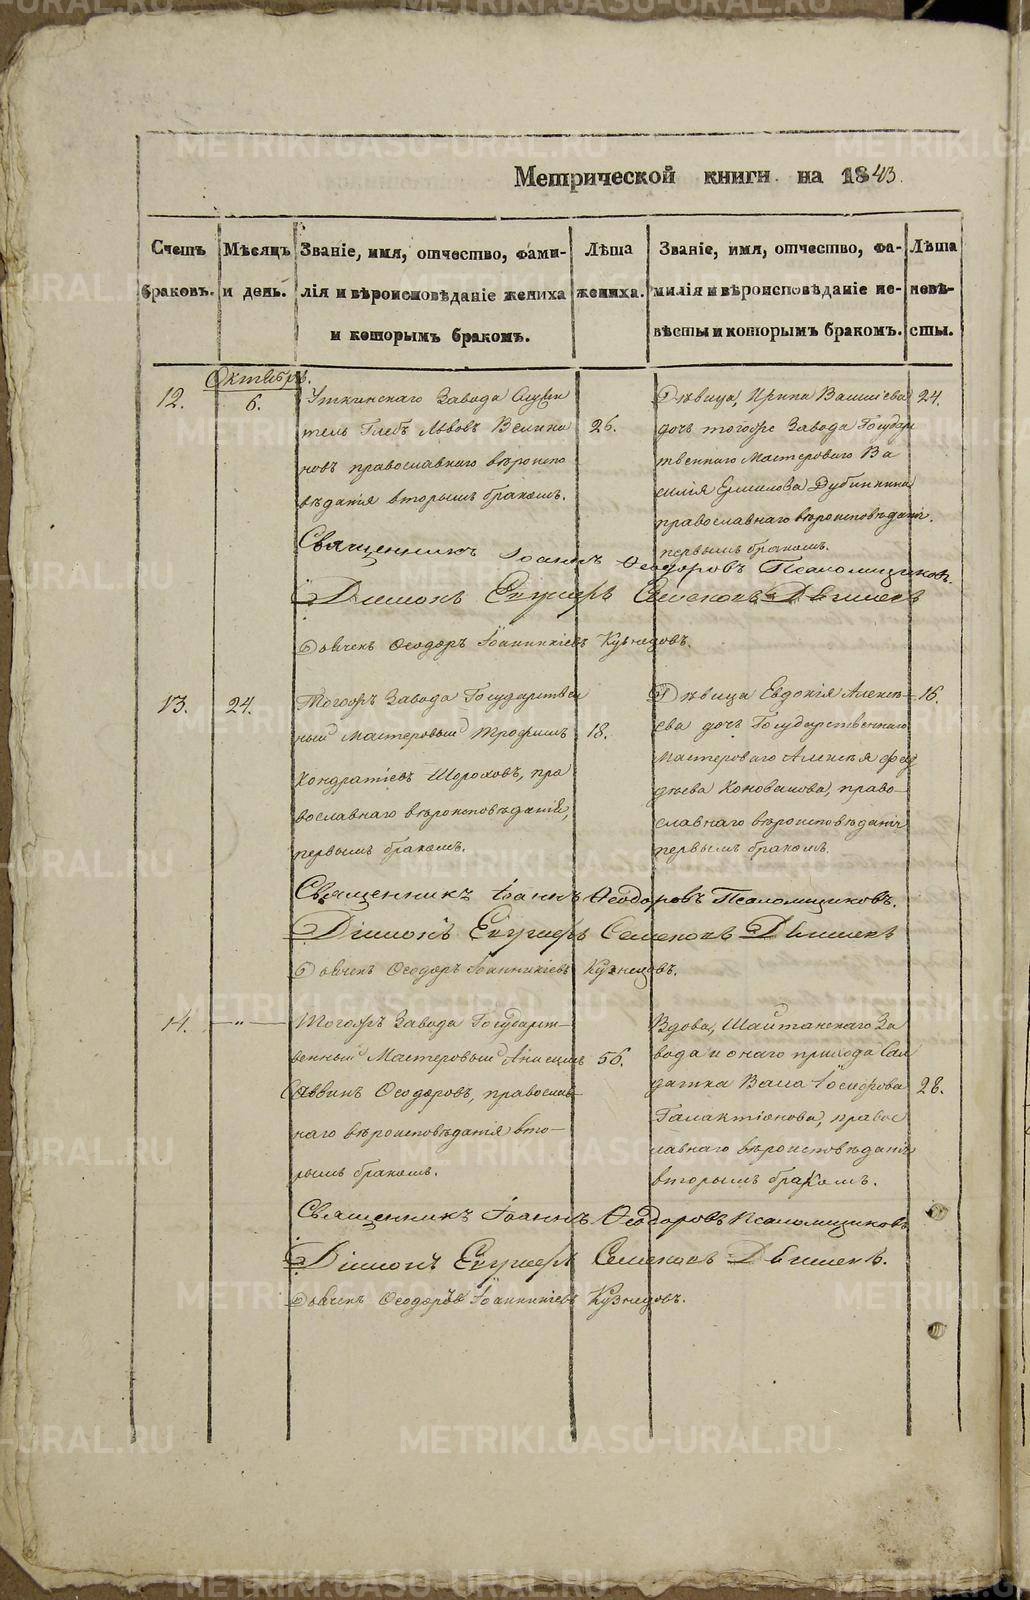 Метрической книги на 1843.
Счетъ браковъ.
Мѣсяцъ и день.
Званіе, имя, отчество, фами-
лія и вѣроисповѣданіе жениха
и которымъ бракомъ.
Лѣта
жениха.
Званіе, имя, отчество, фа-
милія и вѣроисповѣданіе не-
вѣсты и которымъ бракомъ.
Лѣта
невѣ-
сты.
Октябрь.
12.
6.
Уткинскаго Завода Служи
тель Глебъ Львовъ
новъ православнаго вѣроиспо
вѣданія вторымъ бракомъ.
26.
Дѣвица, Ирина Васильева
дочь тогоже Завода Государ
твеннаго Мастероваго Ва
силія Ермилова Дубинкина
православнаго вѣроисповѣданія.
первымъ бракомъ.
24.
Священникъ Іоаннъ Ѳеодоровъ Псаломщиковъ.
Діяконъ Семеновъ
Ѳеодоръ Іоанникіевъ Кузнецовъ.
13.
24.
Тогожъ Завода Государствен
ный Мастеровый Трофимъ
Кондратіевъ Шороховъ, пра
вославнаго вѣроисповѣданія,
первымъ бракомъ.
18.
Дѣвица Евдокія Алексѣ-
ева дочь Государственнаго
Мастероваго Алексѣя Фад
дѣева Коновалова, право-
славнаго вѣроисповѣданія
первымъ бракомъ.
16.
Священникъ Іоаннъ Ѳеодоровъ Псаломщиковъ.
Діяконъ Семеновъ
Ѳеодоръ Іоанникіевъ Кузнецовъ.
14.
—"—
Тогожъ Завода Государст-
венный Мастеровый Анисимъ
Саввинъ Ѳеодоровъ, православ-
наго вѣроисповѣданія вто-
рымъ бракомъ.
56.
Вдова, Шайтанскаго За
вода и онаго прихода Сол
датка Васса Іосифова
Галактіонова, правос
лавнаго вѣроисповѣданія
вторымъ бракомъ.
28.
Священникъ Іоаннъ Ѳеодоровъ Псаломщиковъ
Діяконъ Семеновъ
Ѳеодоръ Іоанникіевъ Кузнецовъ.
METRIKI.GASO-URAL.RU